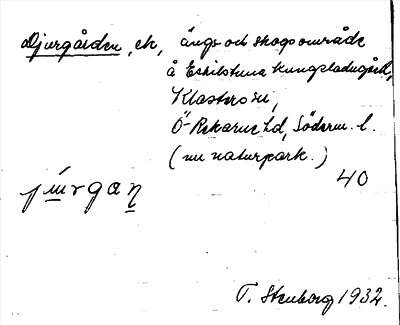 Djurgården, ek, ängs- och skogsområde
å Eskilstuna Kungsladugård,
Klosters sn,
Ö-Rekarne hd, Söderm. l.
(nu naturpark.)
40
T. Stenborg 1932.